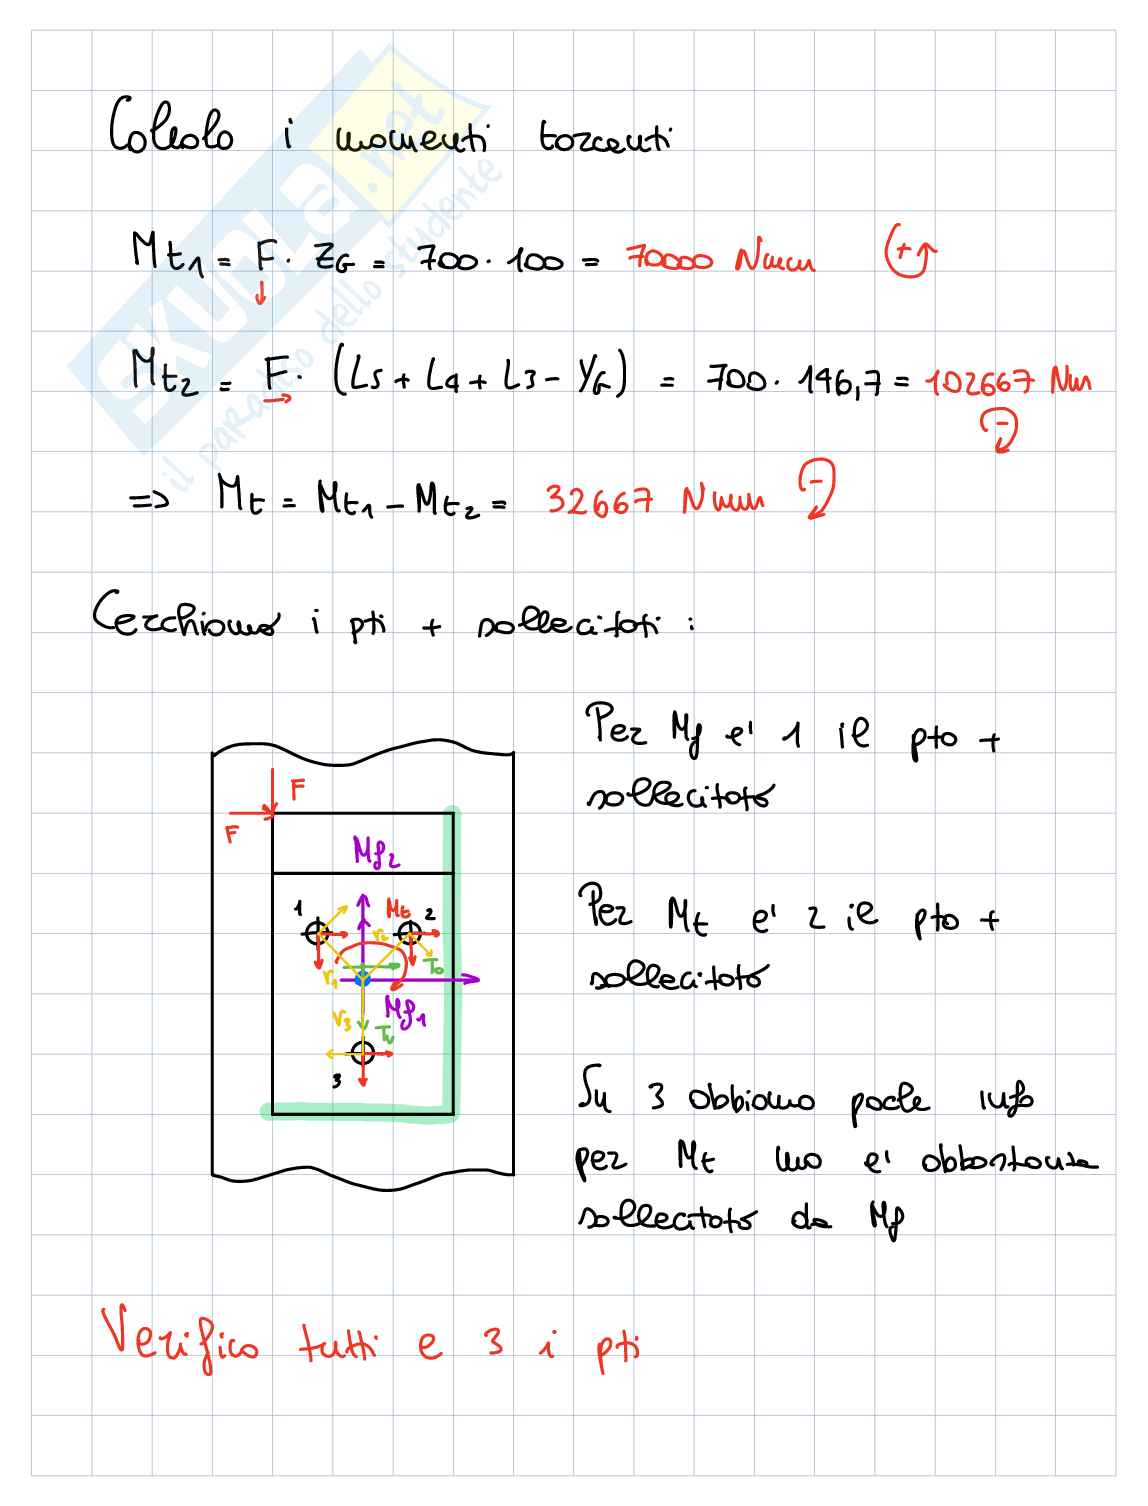 Calcolo i momenti torcenti
Mt1 = F · ZG = 700 · 100 = 70000 Nmm (+
Mt2 = F · (L5 + L4 + L3 - YG) = 700 · 146,7 = 102667 Nm
-
=> Mt = Mt1 - Mt2 = 32667 Nmm -
Cerchiamo i pti + sollecitati :
Per Mf e' 1 il pto +
sollecitato
F
F
Mf2
1
Mt
2
r2
r1
To
Mf1
r3
Tv
3
Per Mt e' 2 il pto +
sollecitato
Su 3 abbiamo poche info
per Mt ma e' abbastanza
sollecitato da Mf
Verifico tutti e 3 i pti
SKUOLA.net
il paradiso dello studente